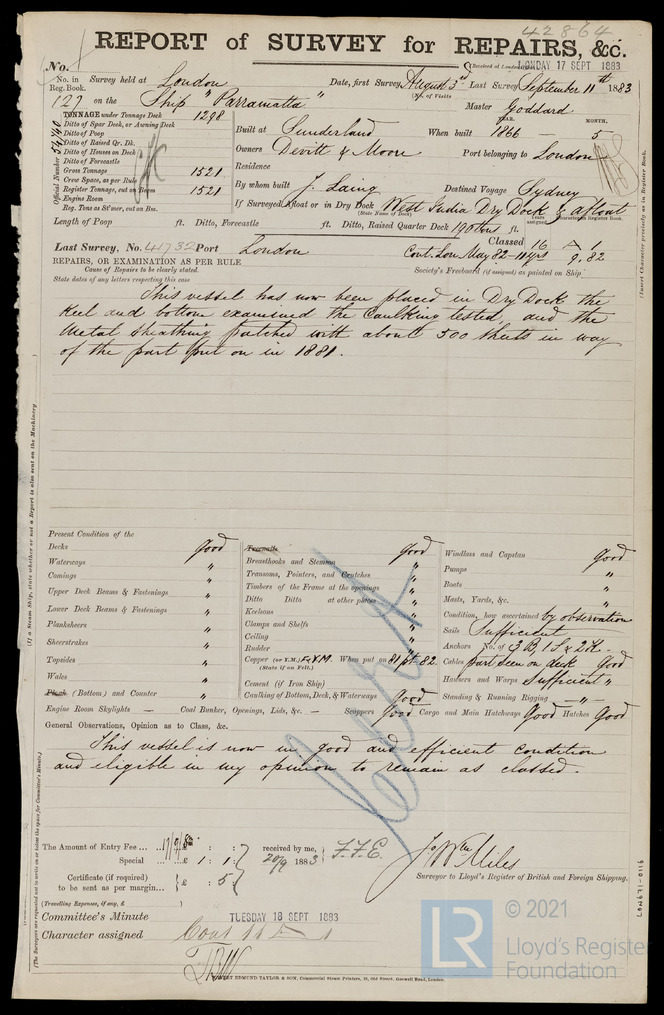 42864
REPORT of SURVEY for REPAIRS, &c.
(Received at London
MONDAY 17 SEPT 1883
No.
No. in Reg. Book. Survey held at London Date, first Survey August 3rd Last Survey September 11th 1883
(No. of Visits
127 on the Ship "Parramatta" Master Goddard
TONNAGE under Tonnage Deck 1298
Ditto of Spar Deck, or Awning Deck
Ditto of Poop
Ditto of Raised Qr. Dk.
Ditto of Houses on Deck
Ditto of Forecastle
Gross Tonnage 1521
Crew Space, as per Rule
Register Tonnage, cut on Beam 1521
Engine Room
Reg. Tons as St'mer, cut on Bm.
Official Number 54440
YEAR. MONTH.
Built at Sunderland When built 1866 - 5
Owners Devitt & Moore Port belonging to London
Residence
By whom built J. Laing Destined Voyage Sydney
If Surveyed Afloat or in Dry Dock West India Dry Dock & afloat
(State Name of Dock)
Length of Poop ft. Ditto, Forecastle ft. Ditto, Raised Quarter Deck ft.
Years assigned. Character in Register Book.
Last Survey, No. 41732 Port London
Classed 16 A 1
Cont. Lon May 82 - 11 yrs 9.82
REPAIRS, OR EXAMINATION AS PER RULE
Cause of Repairs to be clearly stated.
State dates of any letters respecting this case
Society's Freeboard (if assigned) as painted on Ship
This vessel has now been placed in Dry Dock the
Keel and bottom examined the Caulking tested, and the
Metal Sheathing patched with about 500 Sheets in way
of the part put on in 1881.
Present Condition of the
Decks Good
Waterways "
Comings "
Upper Deck Beams & Fastenings "
Lower Deck Beams & Fastenings "
Planksheers "
Sheerstrakes "
Topsides "
Wales "
Plank (Bottom) and Counter "
Engine Room Skylights — Coal Bunker, Openings, Lids, &c. — Scuppers Good Cargo and Main Hatchways Good Hatches Good
Treenails Good
Breasthooks and Stemms "
Transoms, Pointers, and Crutches "
Timbers of the Frame at the openings "
Ditto Ditto at other places "
Keelsons "
Clamps and Shelfs "
Ceiling "
Rudder "
Copper (or Y.M.) F & Y.M. When put on 81 pt 82
(State if on Felt.)
Cement (if Iron Ship)
Caulking of Bottom, Deck, & Waterways Good
Windlass and Capstan Good
Pumps "
Boats "
Masts, Yards, &c. "
Condition, how ascertained by observation
Sails Sufficient
Anchors No. of 3 B, 1 S & 2 K.
Cables part seen on deck Good
Hawsers and Warps Sufficient "
Standing & Running Rigging — " —
General Observations, Opinion as to Class, &c.
This vessel is now in good and efficient condition
and eligible in my opinion to remain as classed.
The Amount of Entry Fee ... £ : :
Special ... £ 1 : 1 :
Certificate (if required) to be sent as per margin ... £ : 5 :
received by me,
20/9 1883 F.F.E.
(Travelling Expenses, if any, £ )
Jo Wm Miles
Surveyor to Lloyd's Register of British and Foreign Shipping.
Committee's Minute TUESDAY 18 SEPT 1883
Character assigned Cont 11 A 1
WEST EDMUND TAYLOR & SON, Commercial Steam Printers, 15, Old Street, Goswell Road, London.
(If a Steam Ship, state whether or not a Report is also sent on the Machinery
(The Surveyors are requested not to write on or below the space for Committee's Minute.)
(Insert Character precisely as in Register Book.
LON671-0116
© 2021
LR
Lloyd's Register
Foundation